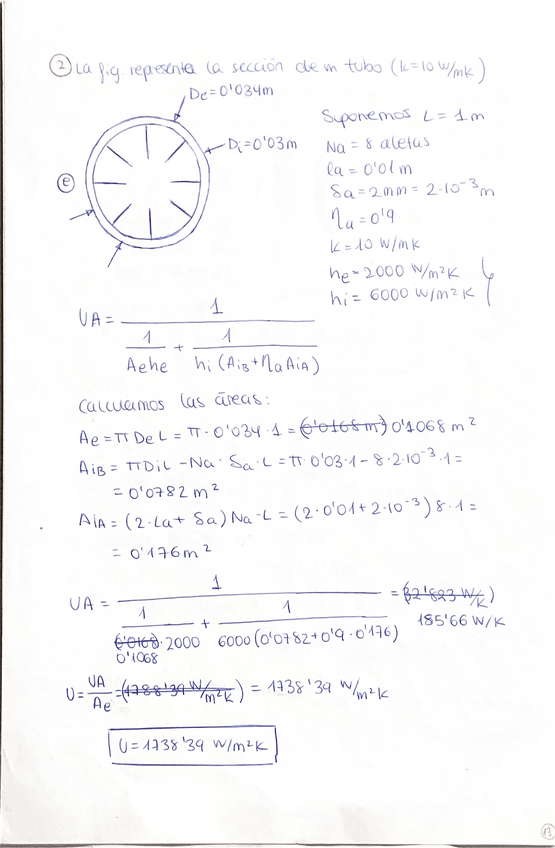 ② La fig. representa la sección de un tubo (k=10 W/mK)
De=0'034m
Di=0'03m
e
Suponemos L = 1m
Na = 8 aletas
la = 0'01 m
δa = 2mm = 2·10⁻³ m
ηa = 0'9
k = 10 W/mK
he = 2000 W/m²K
hi = 6000 W/m²K
UA = 1 / (1/(Aehe) + 1/(hi (AiB + ηaAiA)))
Calculamos las áreas:
Ae = π De L = π · 0'034 · 1 = (0'0168 m²) 0'1068 m²
AiB = πDiL - Na · δa · L = π·0'03·1 - 8·2·10⁻³·1 =
= 0'0782 m²
AiA = (2·La + δa) Na·L = (2·0'01 + 2·10⁻³) 8·1 =
= 0'176 m²
UA = 1 / (1/(0'0168 0'1068 · 2000) + 1/(6000 (0'0782 + 0'9 · 0'176))) = (32'823 W/K) 185'66 W/K
U = UA/Ae = (1788'39 W/m²K) = 1738'39 W/m²K
U = 1738'39 W/m²K
13